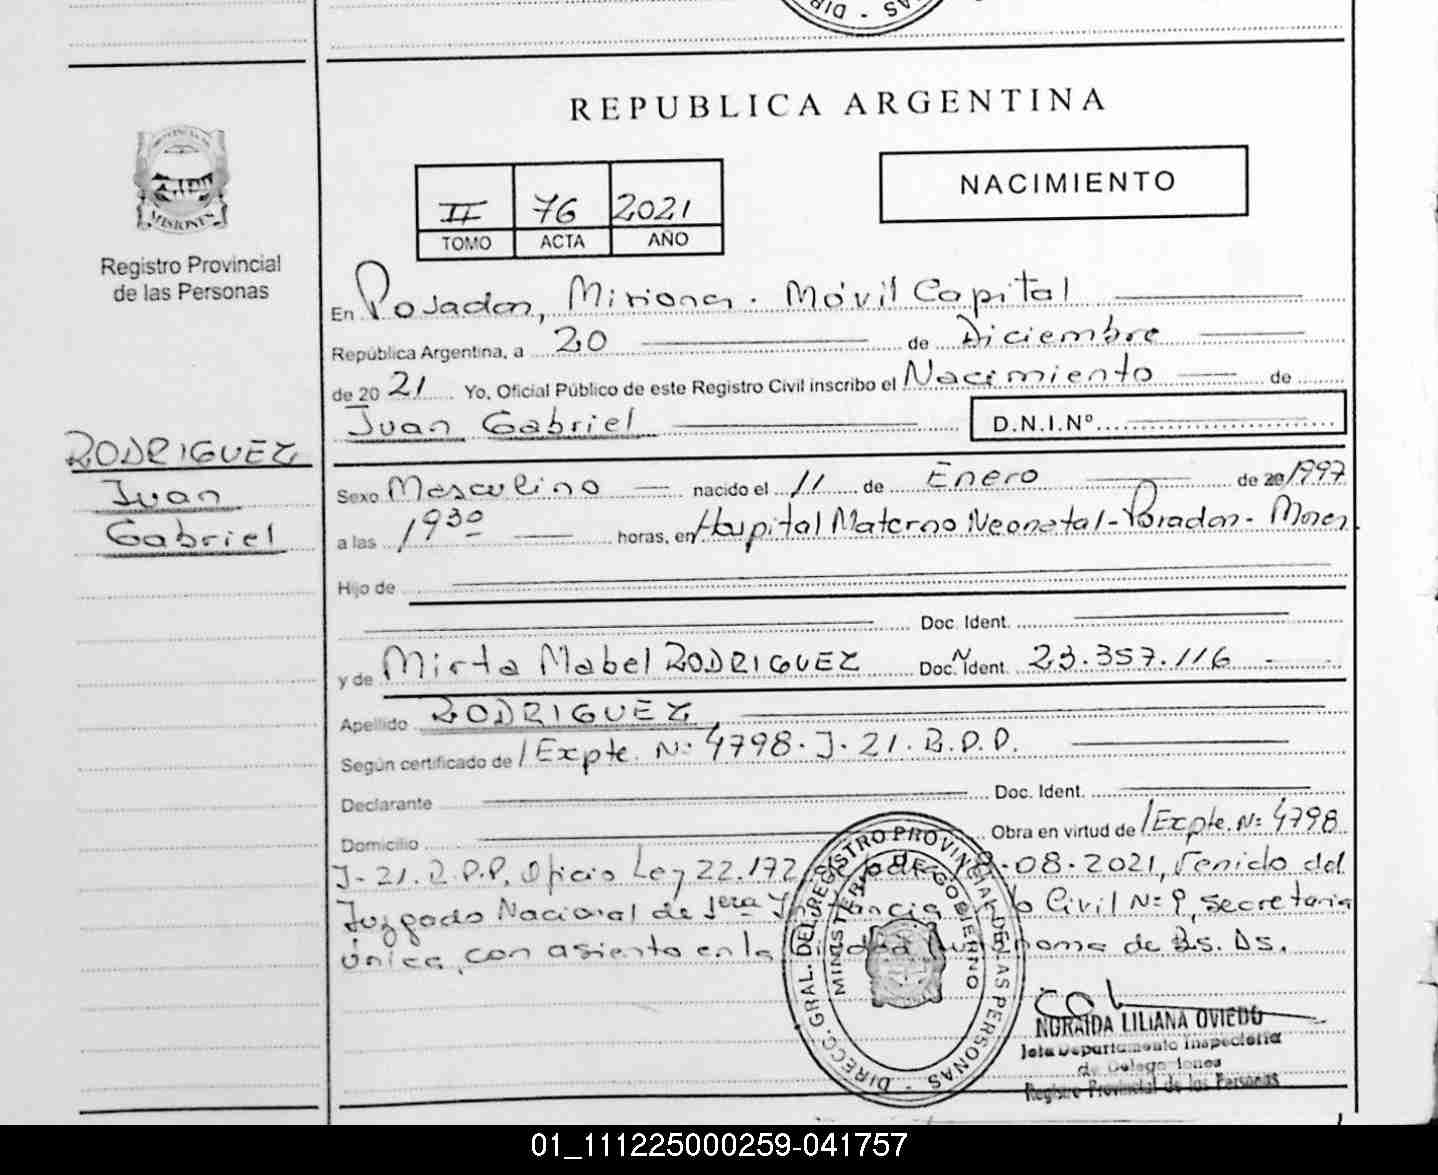 REPUBLICA ARGENTINA
NACIMIENTO
II 76 2021
TOMO ACTA AÑO
MISIONES
Registro Provincial
de las Personas
En Posadas, Misiones. Móvil Capital
República Argentina, a 20 de Diciembre
de 2021 Yo, Oficial Público de este Registro Civil inscribo el Nacimiento de
Juan Gabriel D.N.I.Nº
RODRIGUEZ
Juan
Gabriel
Sexo Masculino nacido el 11 de Enero de 20 1997
a las 1930 horas, en Hospital Materno Neonatal-Posadas- Mnes
Hijo de
Doc. Ident.
y de Mirta Mabel RODRIGUEZ Doc. Ident. 23.357.116
Apellido RODRIGUEZ
Según certificado de /Expte. Nº 4798. J. 21. R.P.P.
Declarante Doc. Ident.
Domicilio Obra en virtud de /Expte. Nº 4798
J-21. R.P.P, Oficio Ley 22.172, 08-2021, venido del
Juzgado Nacional de 1era Instancia Civil Nº 9, secretaria
única, con asiento en la Ciudad Autónoma de Bs. As.
DIRECC. GRAL. DEL REGISTRO PROVINCIAL DE LAS PERSONAS
MINISTERIO DE GOBIERNO
NORAIDA LILIANA OVIEDO
Jefa Departamento Inspectoría
de Delegaciones
Registro Provincial de las Personas
01_111225000259-041757